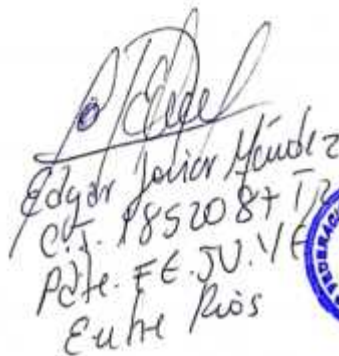 Edgar Javier Méndez
C.I. 1852087 Tja
Pdte. FE.JU.VE
Entre Ríos
FEDERACI